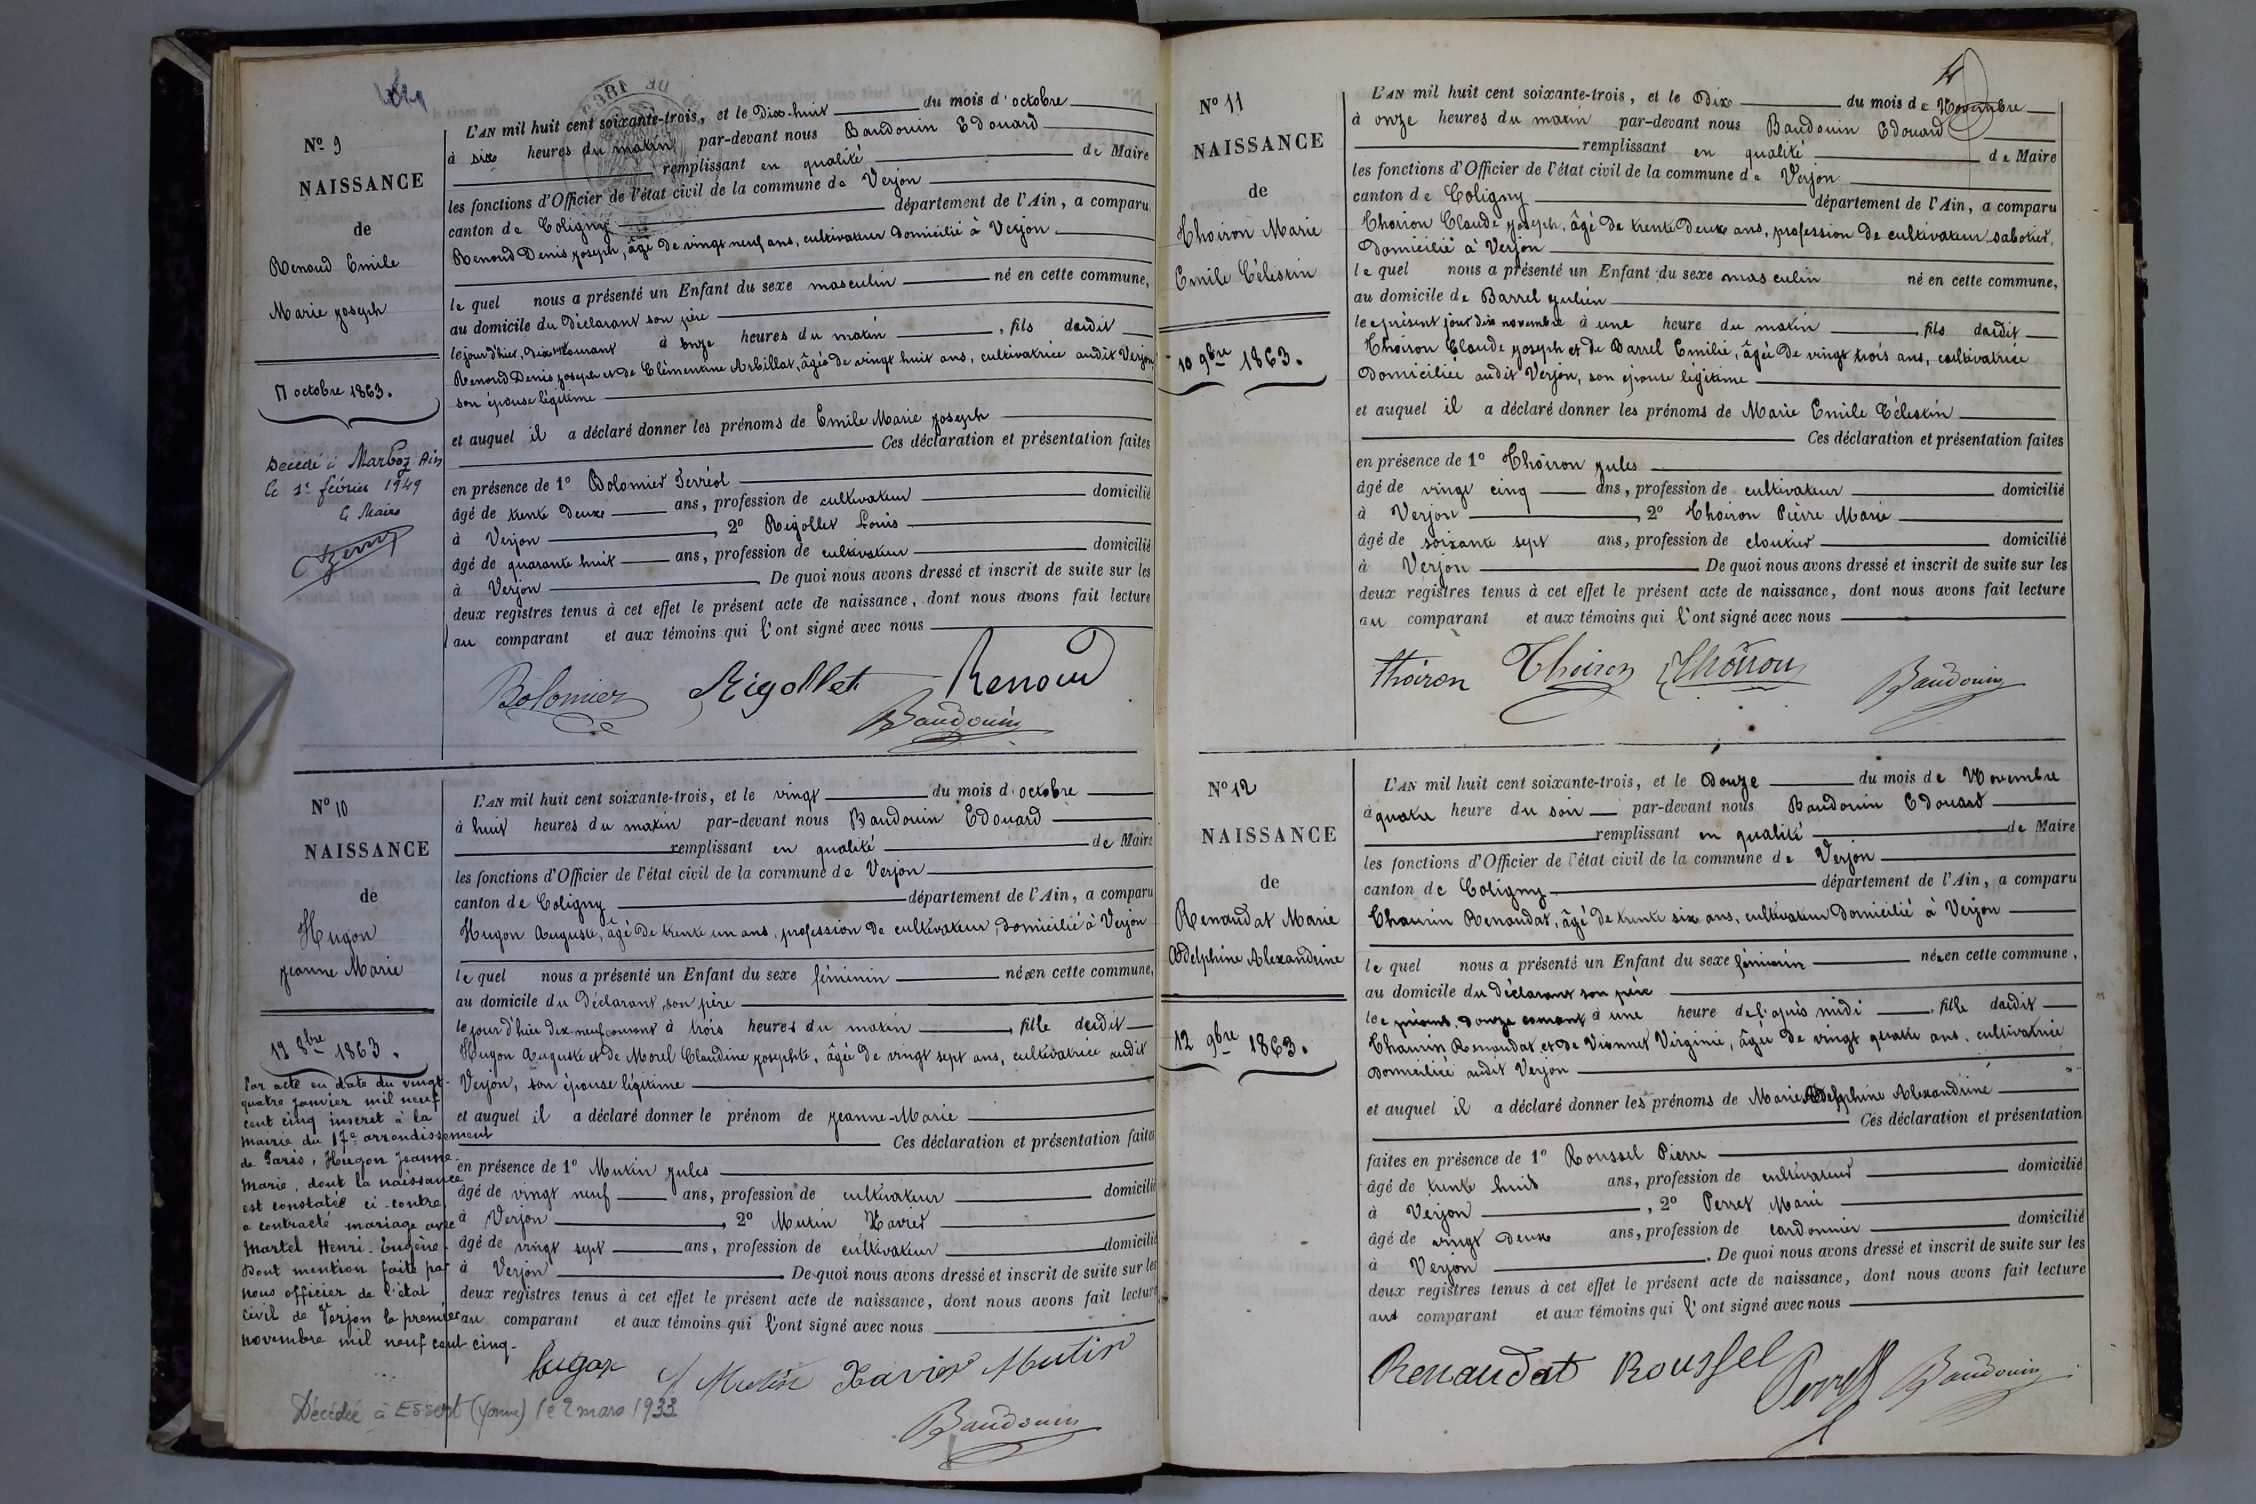 Nº 9
NAISSANCE
de
Renoud Emile
Marie joseph
17 octobre 1863.
Décédé à Marboz Ain
le 1er février 1949
le Maire
L'AN mil huit cent soixante-trois, et le Dix-huit du mois d'octobre
à six heures du matin par-devant nous Baudouin Edouard
remplissant en qualité de Maire
les fonctions d'Officier de l'état civil de la commune de Verjon
canton de Coligny département de l'Ain, a comparu
Renoud Denis joseph, âgé de vingt neuf ans, cultivateur domicilié à Verjon
le quel nous a présenté un Enfant du sexe masculin né en cette commune,
au domicile du Déclarant son père
le jour d'hier, dix sept courant à onze heures du matin, fils dudit
Renoud Denis joseph et de Clémentine Arbillat, âgée de vingt huit ans, cultivatrice audit Verjon,
son épouse légitime
et auquel il a déclaré donner les prénoms de Emile Marie joseph
Ces déclaration et présentation faites
en présence de 1º Bolomier Ferréol
âgé de trente deux ans, profession de cultivateur domicilié
à Verjon, 2º Rigollet Louis
âgé de quarante huit ans, profession de cultivateur domicilié
à Verjon De quoi nous avons dressé et inscrit de suite sur les
deux registres tenus à cet effet le présent acte de naissance, dont nous avons fait lecture
au comparant et aux témoins qui l'ont signé avec nous
Bolomier Rigollet Renoud
Baudouin
Nº 10
NAISSANCE
de
Hugon
jeanne Marie
19 8bre 1863.
Par acte en date du vingt-
quatre janvier mil neuf
cent cinq inscrit à la
mairie du 17e arrondissement
de Paris, Hugon Jeanne-
Marie, dont la naissance
est constatée ci-contre
a contracté mariage avec
Martel Henri-Eugène.
Dont mention faite par
nous officier de l'état
civil de Verjon le premier
novembre mil neuf cent cinq.
Décédée à Essert (Yonne) le 2 mars 1933
L'AN mil huit cent soixante-trois, et le vingt du mois d'octobre
à huit heures du matin par-devant nous Baudouin Edouard
remplissant en qualité de Maire
les fonctions d'Officier de l'état civil de la commune de Verjon
canton de Coligny département de l'Ain, a comparu
Hugon Auguste, âgé de trente un ans, profession de cultivateur, domicilié à Verjon
le quel nous a présenté un Enfant du sexe féminin née en cette commune,
au domicile du Déclarant, son père
le jour d'hier dix neuf courant à trois heures du matin, fille dudit
Hugon Auguste et de Morel Claudine josephte, âgée de vingt sept ans, cultivatrice audit
Verjon, son épouse légitime
et auquel il a déclaré donner le prénom de jeanne-Marie
Ces déclaration et présentation faites
en présence de 1º Mutin jules
âgé de vingt neuf ans, profession de cultivateur domicilié
à Verjon, 2º Mutin Xavier
âgé de vingt sept ans, profession de cultivateur domicilié
à Verjon. De quoi nous avons dressé et inscrit de suite sur les
deux registres tenus à cet effet le présent acte de naissance, dont nous avons fait lecture
au comparant et aux témoins qui l'ont signé avec nous
hugon J Mutin Xavier Mutin
Baudouin
Nº 11
NAISSANCE
de
Thoiron Marie
Emile Célestin
10 9bre 1863.
L'AN mil huit cent soixante-trois, et le Dix du mois de Novembre
à onze heures du matin par-devant nous Baudouin Edouard
remplissant en qualité de Maire
les fonctions d'Officier de l'état civil de la commune de Verjon
canton de Coligny département de l'Ain, a comparu
Thoiron Claude joseph, âgé de trente deux ans, profession de cultivateur sabotier,
domicilié à Verjon
le quel nous a présenté un Enfant du sexe masculin né en cette commune,
au domicile de Barrel julien
le présent jour dix novembre à une heure du matin, fils dudit
Thoiron Claude joseph et de Barrel Emilie, âgée de vingt trois ans, cultivatrice
domiciliée audit Verjon, son épouse légitime
et auquel il a déclaré donner les prénoms de Marie Emile Célestin
Ces déclaration et présentation faites
en présence de 1º Thoiron jules
âgé de vingt cinq ans, profession de cultivateur domicilié
à Verjon, 2º Thoiron Pierre Marie
âgé de soixante sept ans, profession de cloutier domicilié
à Verjon De quoi nous avons dressé et inscrit de suite sur les
deux registres tenus à cet effet le présent acte de naissance, dont nous avons fait lecture
au comparant et aux témoins qui l'ont signé avec nous
thoiron Thoiron Thoiron Baudouin
Nº 12
NAISSANCE
de
Renaudat Marie
Adelphine Alexandrine
12 9bre 1863.
L'AN mil huit cent soixante-trois, et le Douze du mois de Novembre
à quatre heure du soir par-devant nous Baudouin Edouard
remplissant en qualité de Maire
les fonctions d'Officier de l'état civil de la commune de Verjon
canton de Coligny département de l'Ain, a comparu
Renaudat, âgé de trente six ans, cultivateur domicilié à Verjon
le quel nous a présenté un Enfant du sexe féminin née en cette commune,
au domicile du déclarant son père
le douze courant à une heure de l'après midi, fille dudit
Renaudat et de Vionnet Virginie, âgée de vingt quatre ans, cultivatrice
domiciliée audit Verjon
et auquel il a déclaré donner les prénoms de Marie Adelphine Alexandrine
Ces déclaration et présentation
faites en présence de 1º Roussel Pierre
âgé de trente huit ans, profession de cultivateur domicilié
à Verjon, 2º Perret Marie
âgé de vingt deux ans, profession de cordonnier domicilié
à Verjon. De quoi nous avons dressé et inscrit de suite sur les
deux registres tenus à cet effet le présent acte de naissance, dont nous avons fait lecture
au comparant et aux témoins qui l'ont signé avec nous
Renaudat Roussel Perret Baudouin